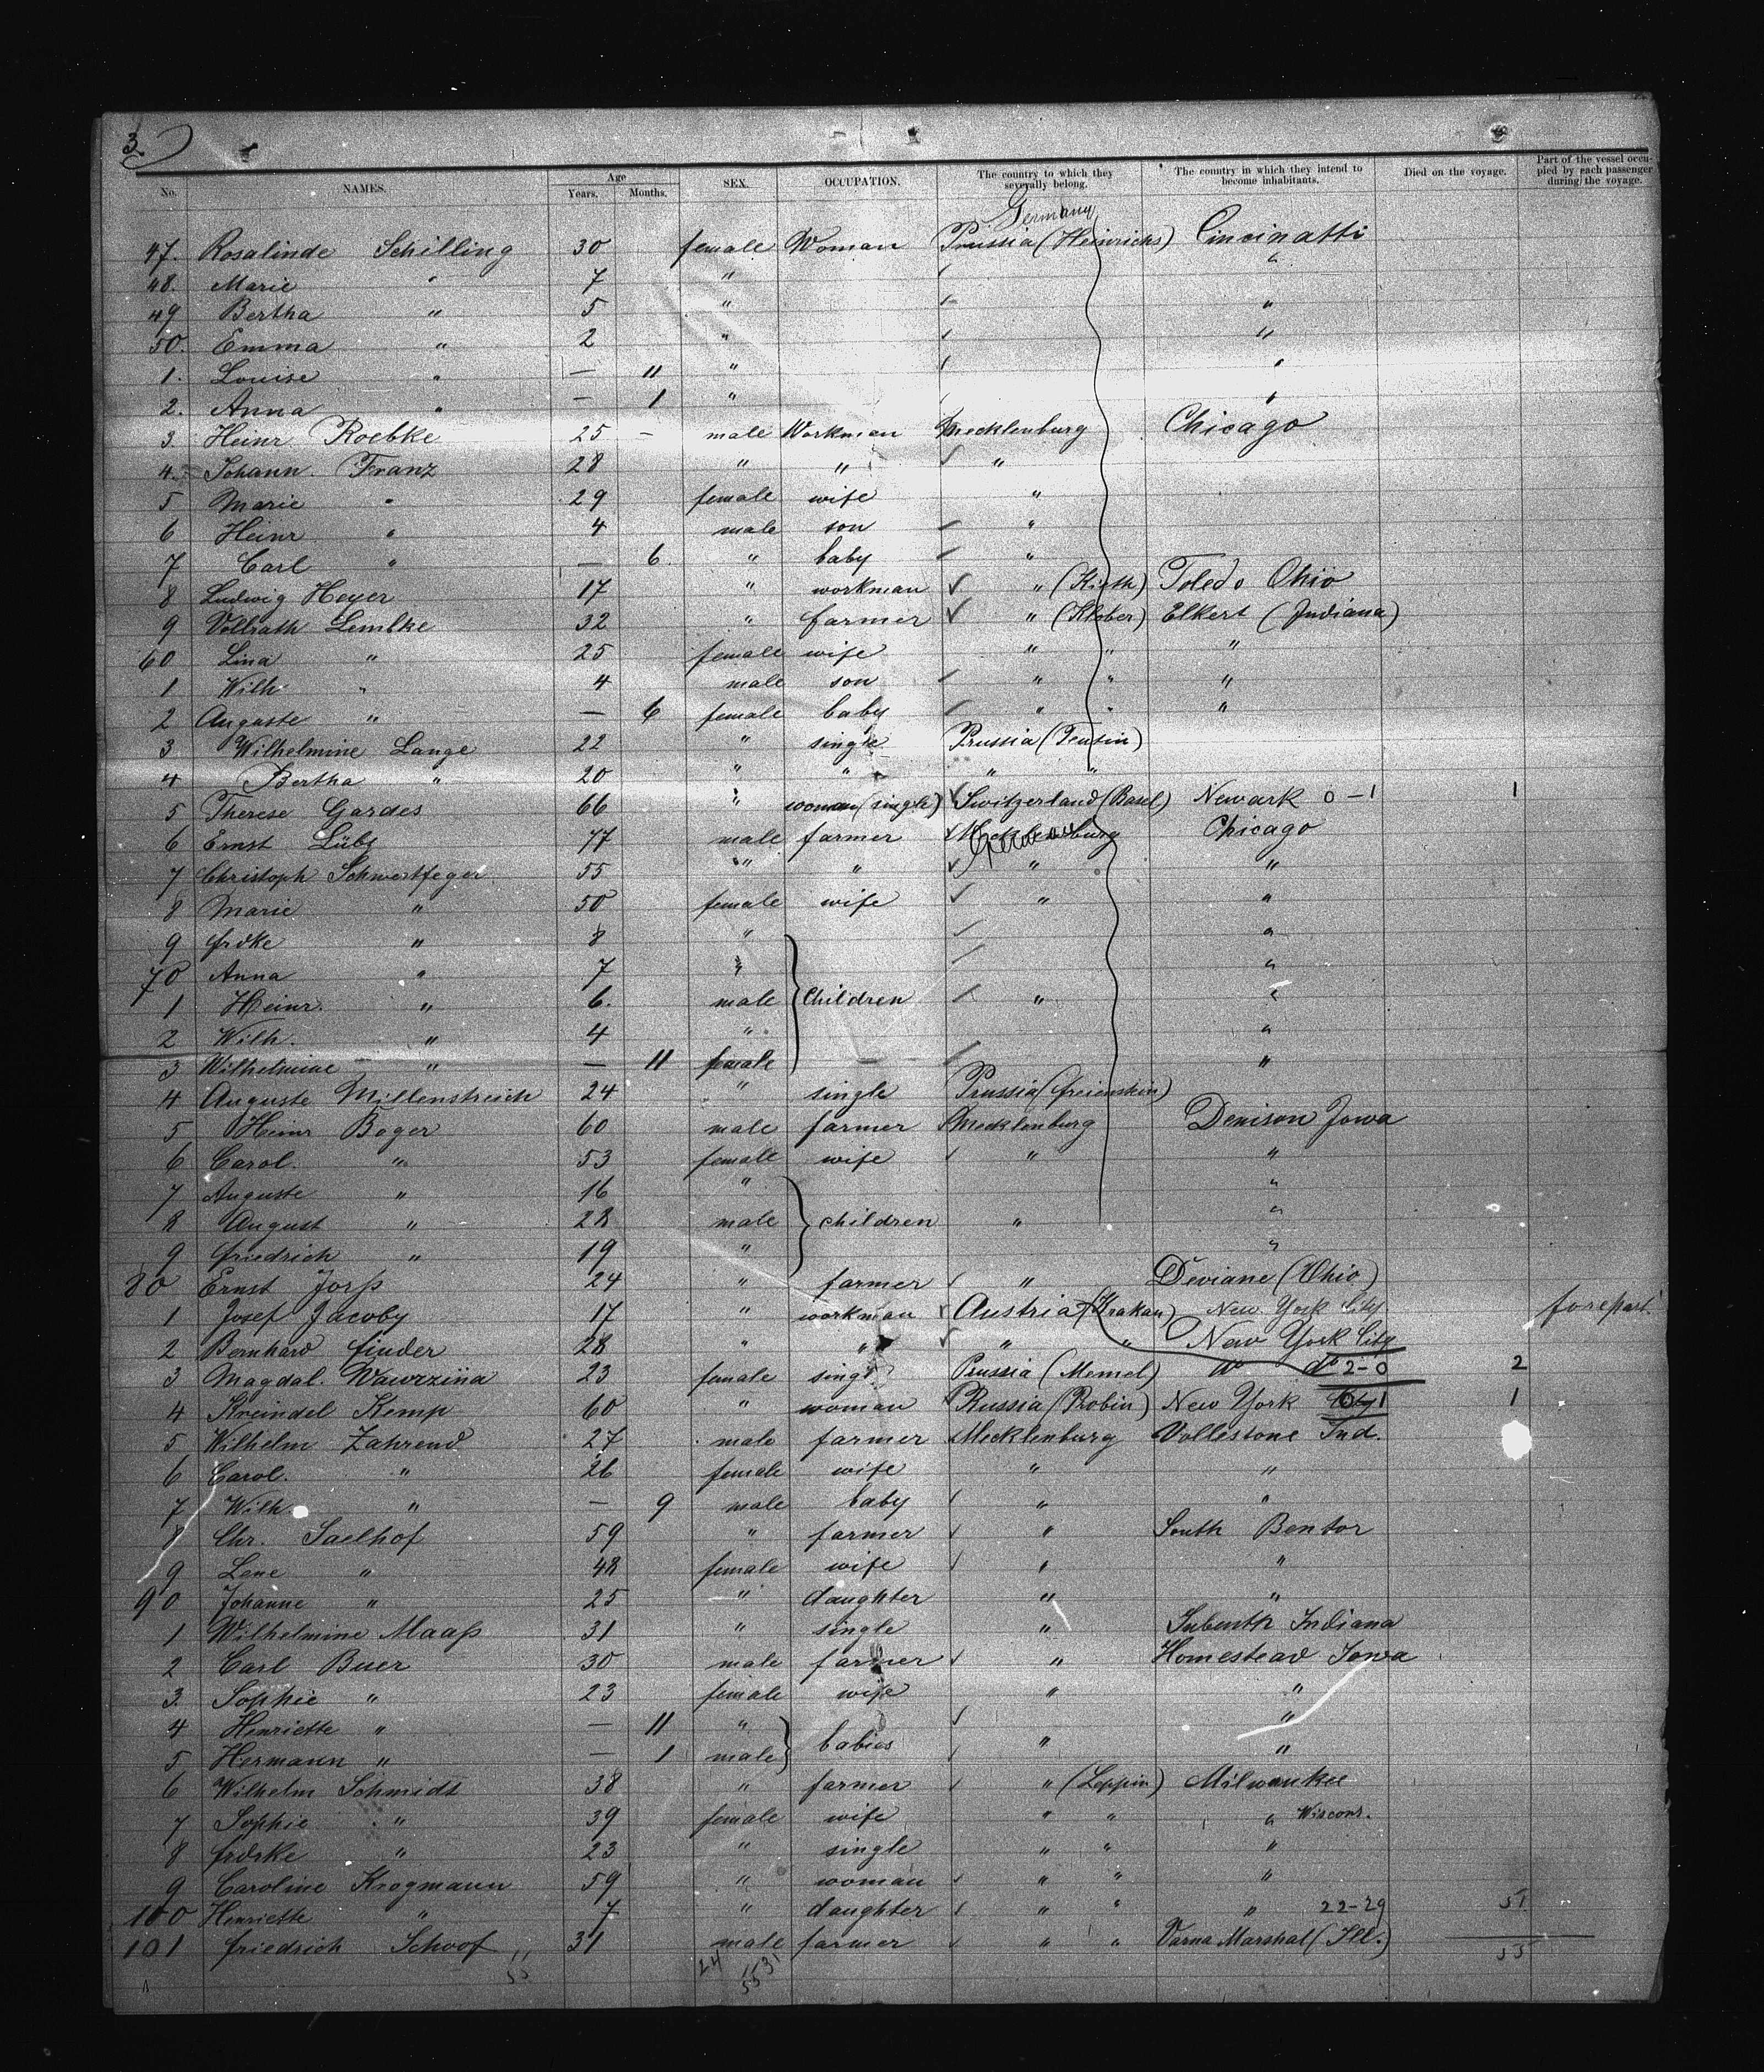 3.
No. NAMES. Age Years. Months. SEX. OCCUPATION. The country to which they severally belong. The country in which they intend to become inhabitants. Died on the voyage. Part of the vessel occupied by each passenger during the voyage.
Germany
47. Rosalinde Schilling 30 female Woman Prussia (Heinrichs) Cincinatti
48. Marie " 7 " "
49 Bertha " 5 " "
50. Emma " 2 " "
1. Louise " — 11 " "
2. Anna " — 1 " "
3. Heinr Roebke 25 — male Workman Mecklenburg Chicago
4. Johann Franz 28 " " "
5 Marie " 29 female wife "
6 Heinr " 4 male son "
7 Carl " — 6. " baby "
8 Ludwig Heyer 17 " workman " (Kieth) Toledo Ohio
9 Vollrath Lembke 32 " farmer " (Klober) Elkert (Indiana)
60 Lina " 25 female wife " " "
1 Wilh " 4 male son " " "
2 Auguste " — 6 female baby " " "
3 Wilhelmine Lange 22 " single Prussia (Tentin)
4 Bertha " 20 " " " "
5 Therese Gardes 66 " woman (single) Switzerland (Basel) Newark 0-1 1
6 Ernst Lübs 77 male farmer Mecklenburg Germany Chicago
7 Christoph Schwertfeger 55 " " " "
8 Marie " 50 female wife " "
9 Frdke " 8 " "
70 Anna " 7 " "
1 Heinr. " 6. male Children " "
2 Wilh. " 4 " "
3 Wilhelmine " — 11 female "
4 Auguste Millenstreich 24 " single Prussia (Freienstein)
5 Heinr Boger 60 male farmer Mecklenburg Denison Jowa
6 Carol. " 53 female wife " "
7 Auguste " 16 " "
8 August " 28 male children " "
9 Friedrich " 19 " "
80 Ernst Jorß 24 " farmer " Deviane (Ohio)
1 Josef Jacoby 17 " workman Austria (Krakau) New York City forepart.
2 Bernhard Finder 28 " " " " New York City
3 Magdal. Wawrzina 23 female singl Prussia (Memel) do do 2-0 2
4 Kreindel Kemp 60 " woman Russia (Robin) New York City 0-1 1
5 Wilhelm Zahrend 27 male farmer Mecklenburg Vollestone Ind.
6 Carol. " 26 female wife " "
7 Wilh " — 9 male baby " "
8 Chr. Saelhof 59 " farmer " South Bentor
9 Lene " 48 female wife " "
90 Johanne " 25 " daughter " "
1 Wilhelmine Maaß 31 " single " Subenth Indiana
2 Carl Buer 30 male farmer " Homestead Jowa
3. Sophie " 23 female wife " "
4 Henriette " — 11 " babies "
5 Hermann " — 1 male " "
6 Wilhelm Schmidt 38 " farmer " (Leppin) Milwaukee
7 Sophie " 39 female wife " " " Wiscons.
8 Frdrke " 23 " single " " "
9 Caroline Krogmann 59 " woman " " "
100 Henriette " 7 " daughter " " " 22-29 51
101 Friedrich Schoof 31 male farmer " " Varna Marshal (Ill.) 55
55 24 31 55